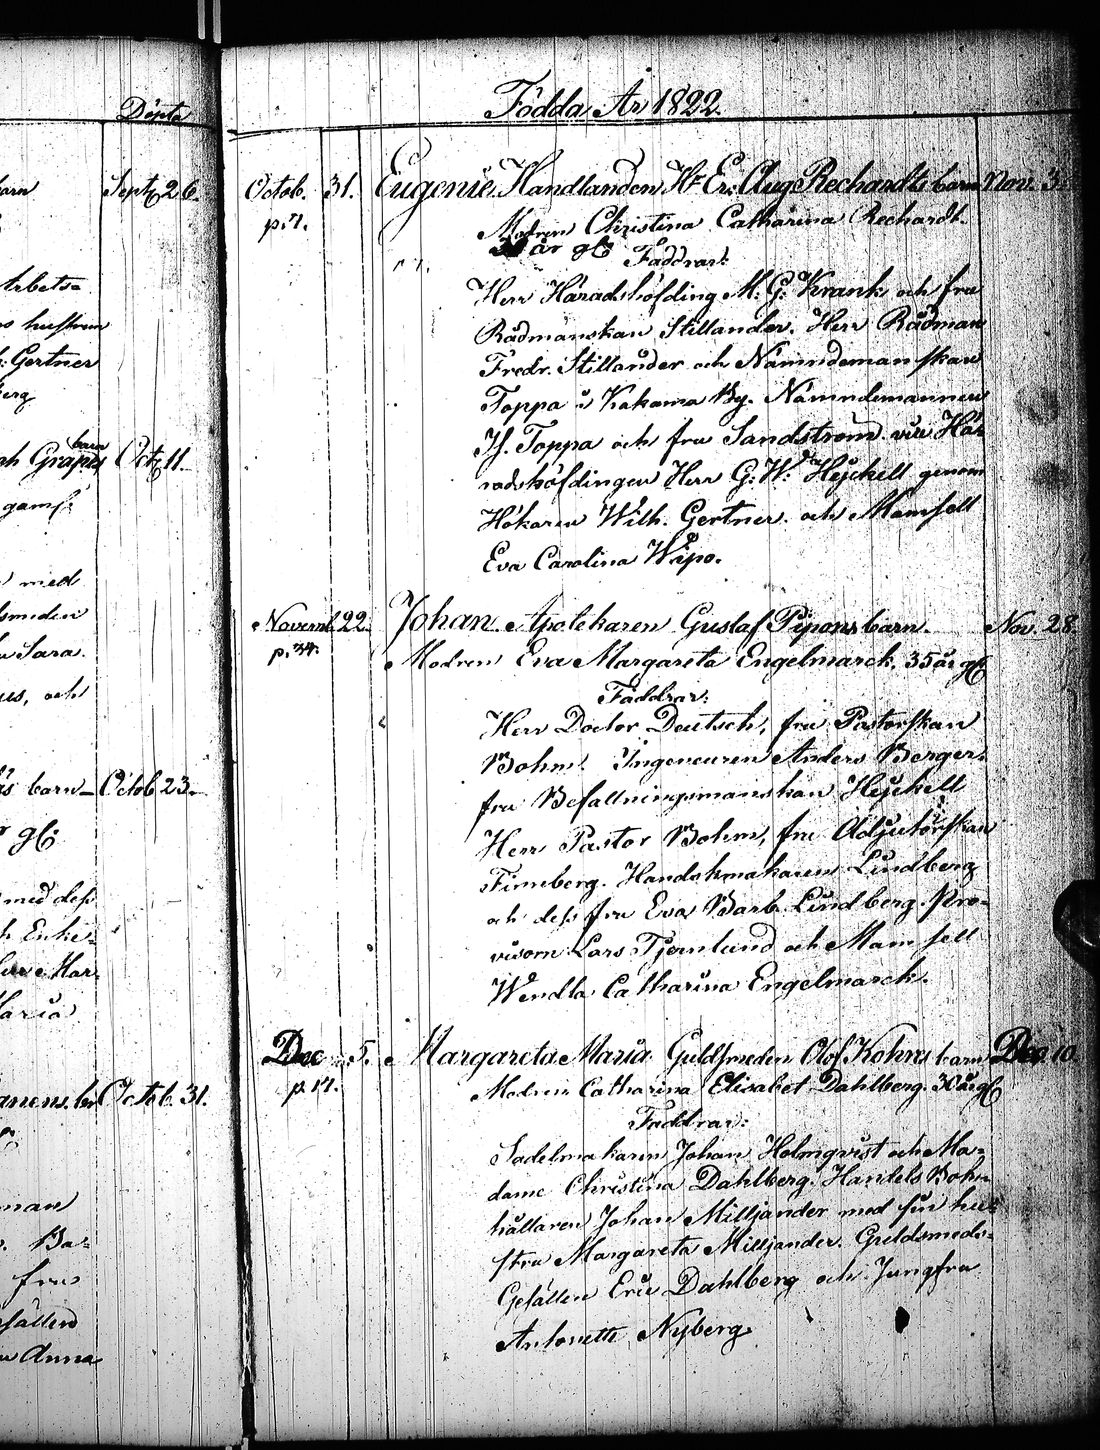 Döpte
barn Sept. 26.
Arbets=
hustrun
Gertner
berg
barn
Grapes Oct. 11.
gaml.
med
smeden
Sara.
och
barn Octob 23.
gl.
med dess
Enke=
Mar=
Maria
Octob. 31.
man
Ba=
fru
sällen
Anna
Födda År 1822.
Octob. 31. Eugenie, Handlanden Hr Er: Aug Rechardts barn Nov. 3
p. 7.
Modren Christina Catharina Rechardt.
år gl.
Faddrar:
Herr Häradshöfding M: G: Krank och fru
Rådmanskan Stillander. Herr Rådman
Fredr. Stillander och Nämndemanskan
Toppa i Kakama By. Nämndemannen
H. Toppa och fru Sandström. vice Hä=
radshöfdingen Herr G: W: Heyckell genom
Hökaren Wilh. Gertner. och Mamsell
Eva Carolina Wipo.
Novemb. 22. Johan. Apotekaren Gustaf Pipons barn. Nov. 28.
p. 34.
Modren Eva Margareta Engelmarck, 35 år gl.
Faddrar:
Herr Doctor Deutsch, fru Pastorskan
Bohm. Ingeneuren Anders Berger.
fru Befallningsmanskan Heyckell
Herr Pastor Bohm, fru Adjutorskan
Finneberg. Handskmakaren Lindberg
och dess fru Eva Barb. Lindberg. Pro=
visorn Lars Tjernlund och Mamsell
Wendla Catharina Engelmarck.
Dec 5. Margareta Maria Guldsmeden Olof Kohns barn Dec. 10.
p. 17.
Modren Catharina Elisabet Dahlberg. 30 år gl.
Faddrar:
Sadelmakaren Johan Holmqvist och Ma=
dame Christina Dahlberg. Handels Bok=
hållaren Johan Milljander med sin hu=
stru Margareta Milljander. Guldsmeds=
Gesällen Eric Dahlberg och Jungfru
Antonette Nyberg